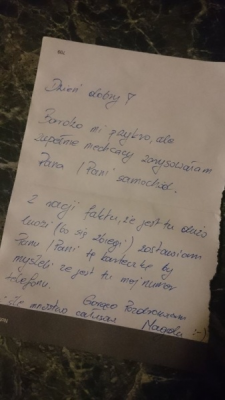 Dzień dobry!
Bardzo mi przykro, ale
zupełnie niechcący zarysowałam
Pana / Pani samochód.
Z racji faktu, że jest tu dużo
ludzi (bo się zbiegli) zostawiam
Panu / Pani tę karteczkę by
myśleli że jest tu mój numer
telefonu.
Gorąco Pozdrawiam
i śle mnóstwo całusów Magda :-)